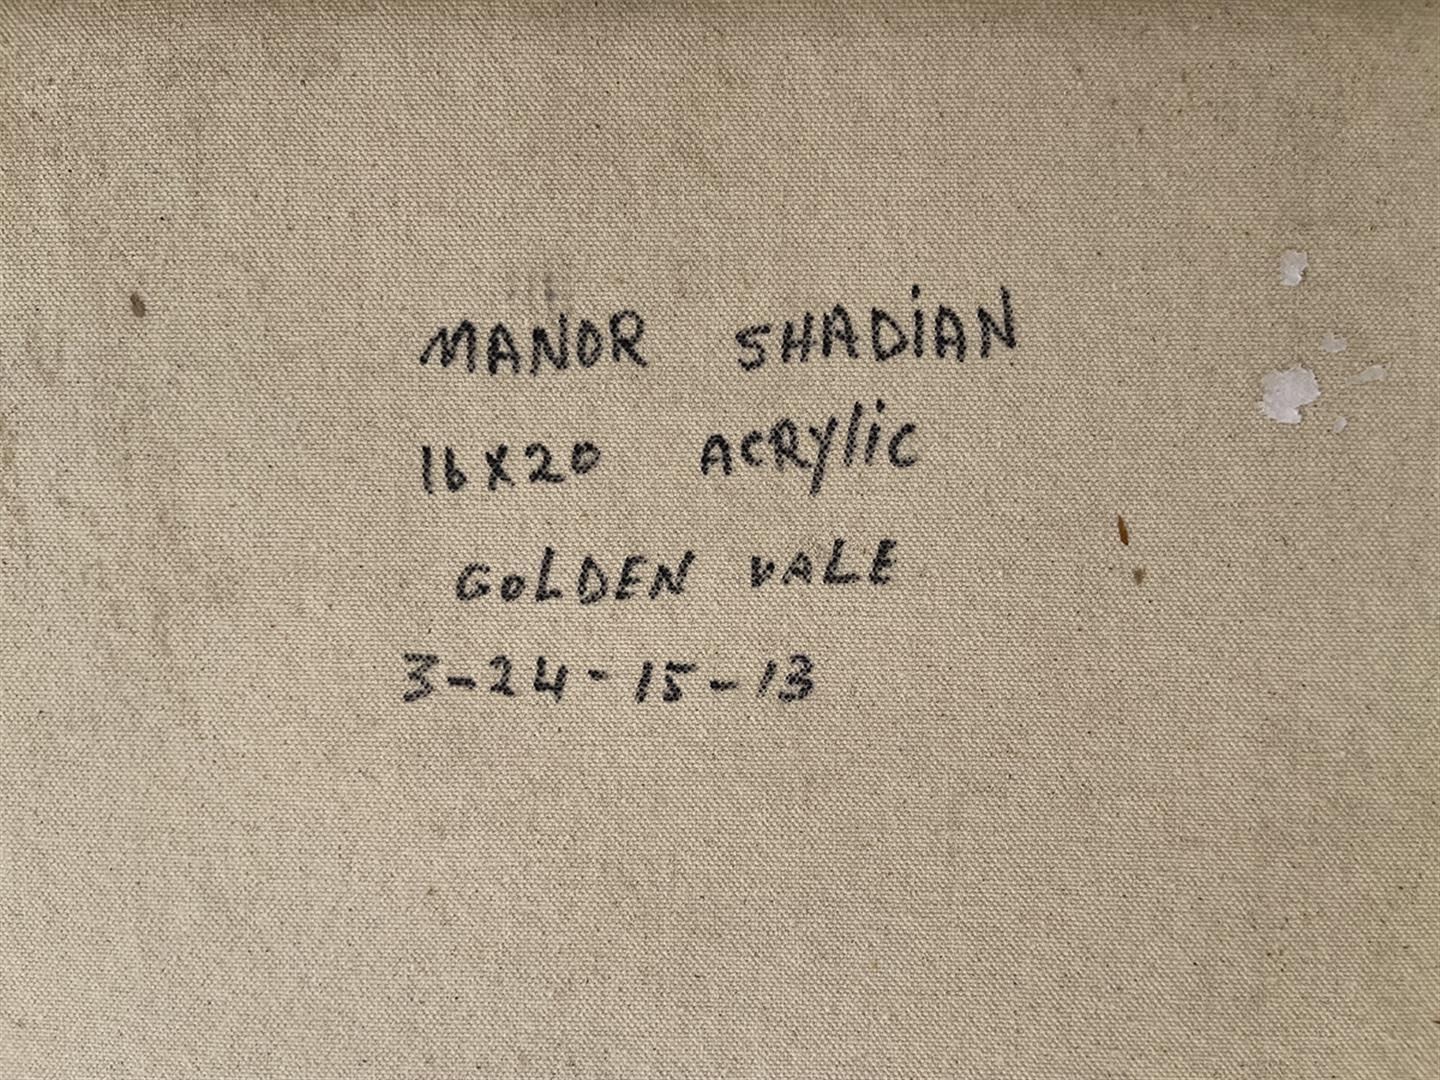 MANOR SHADIAN
16X20 ACRYlic
GOLDEN VALE
3-24-15-13